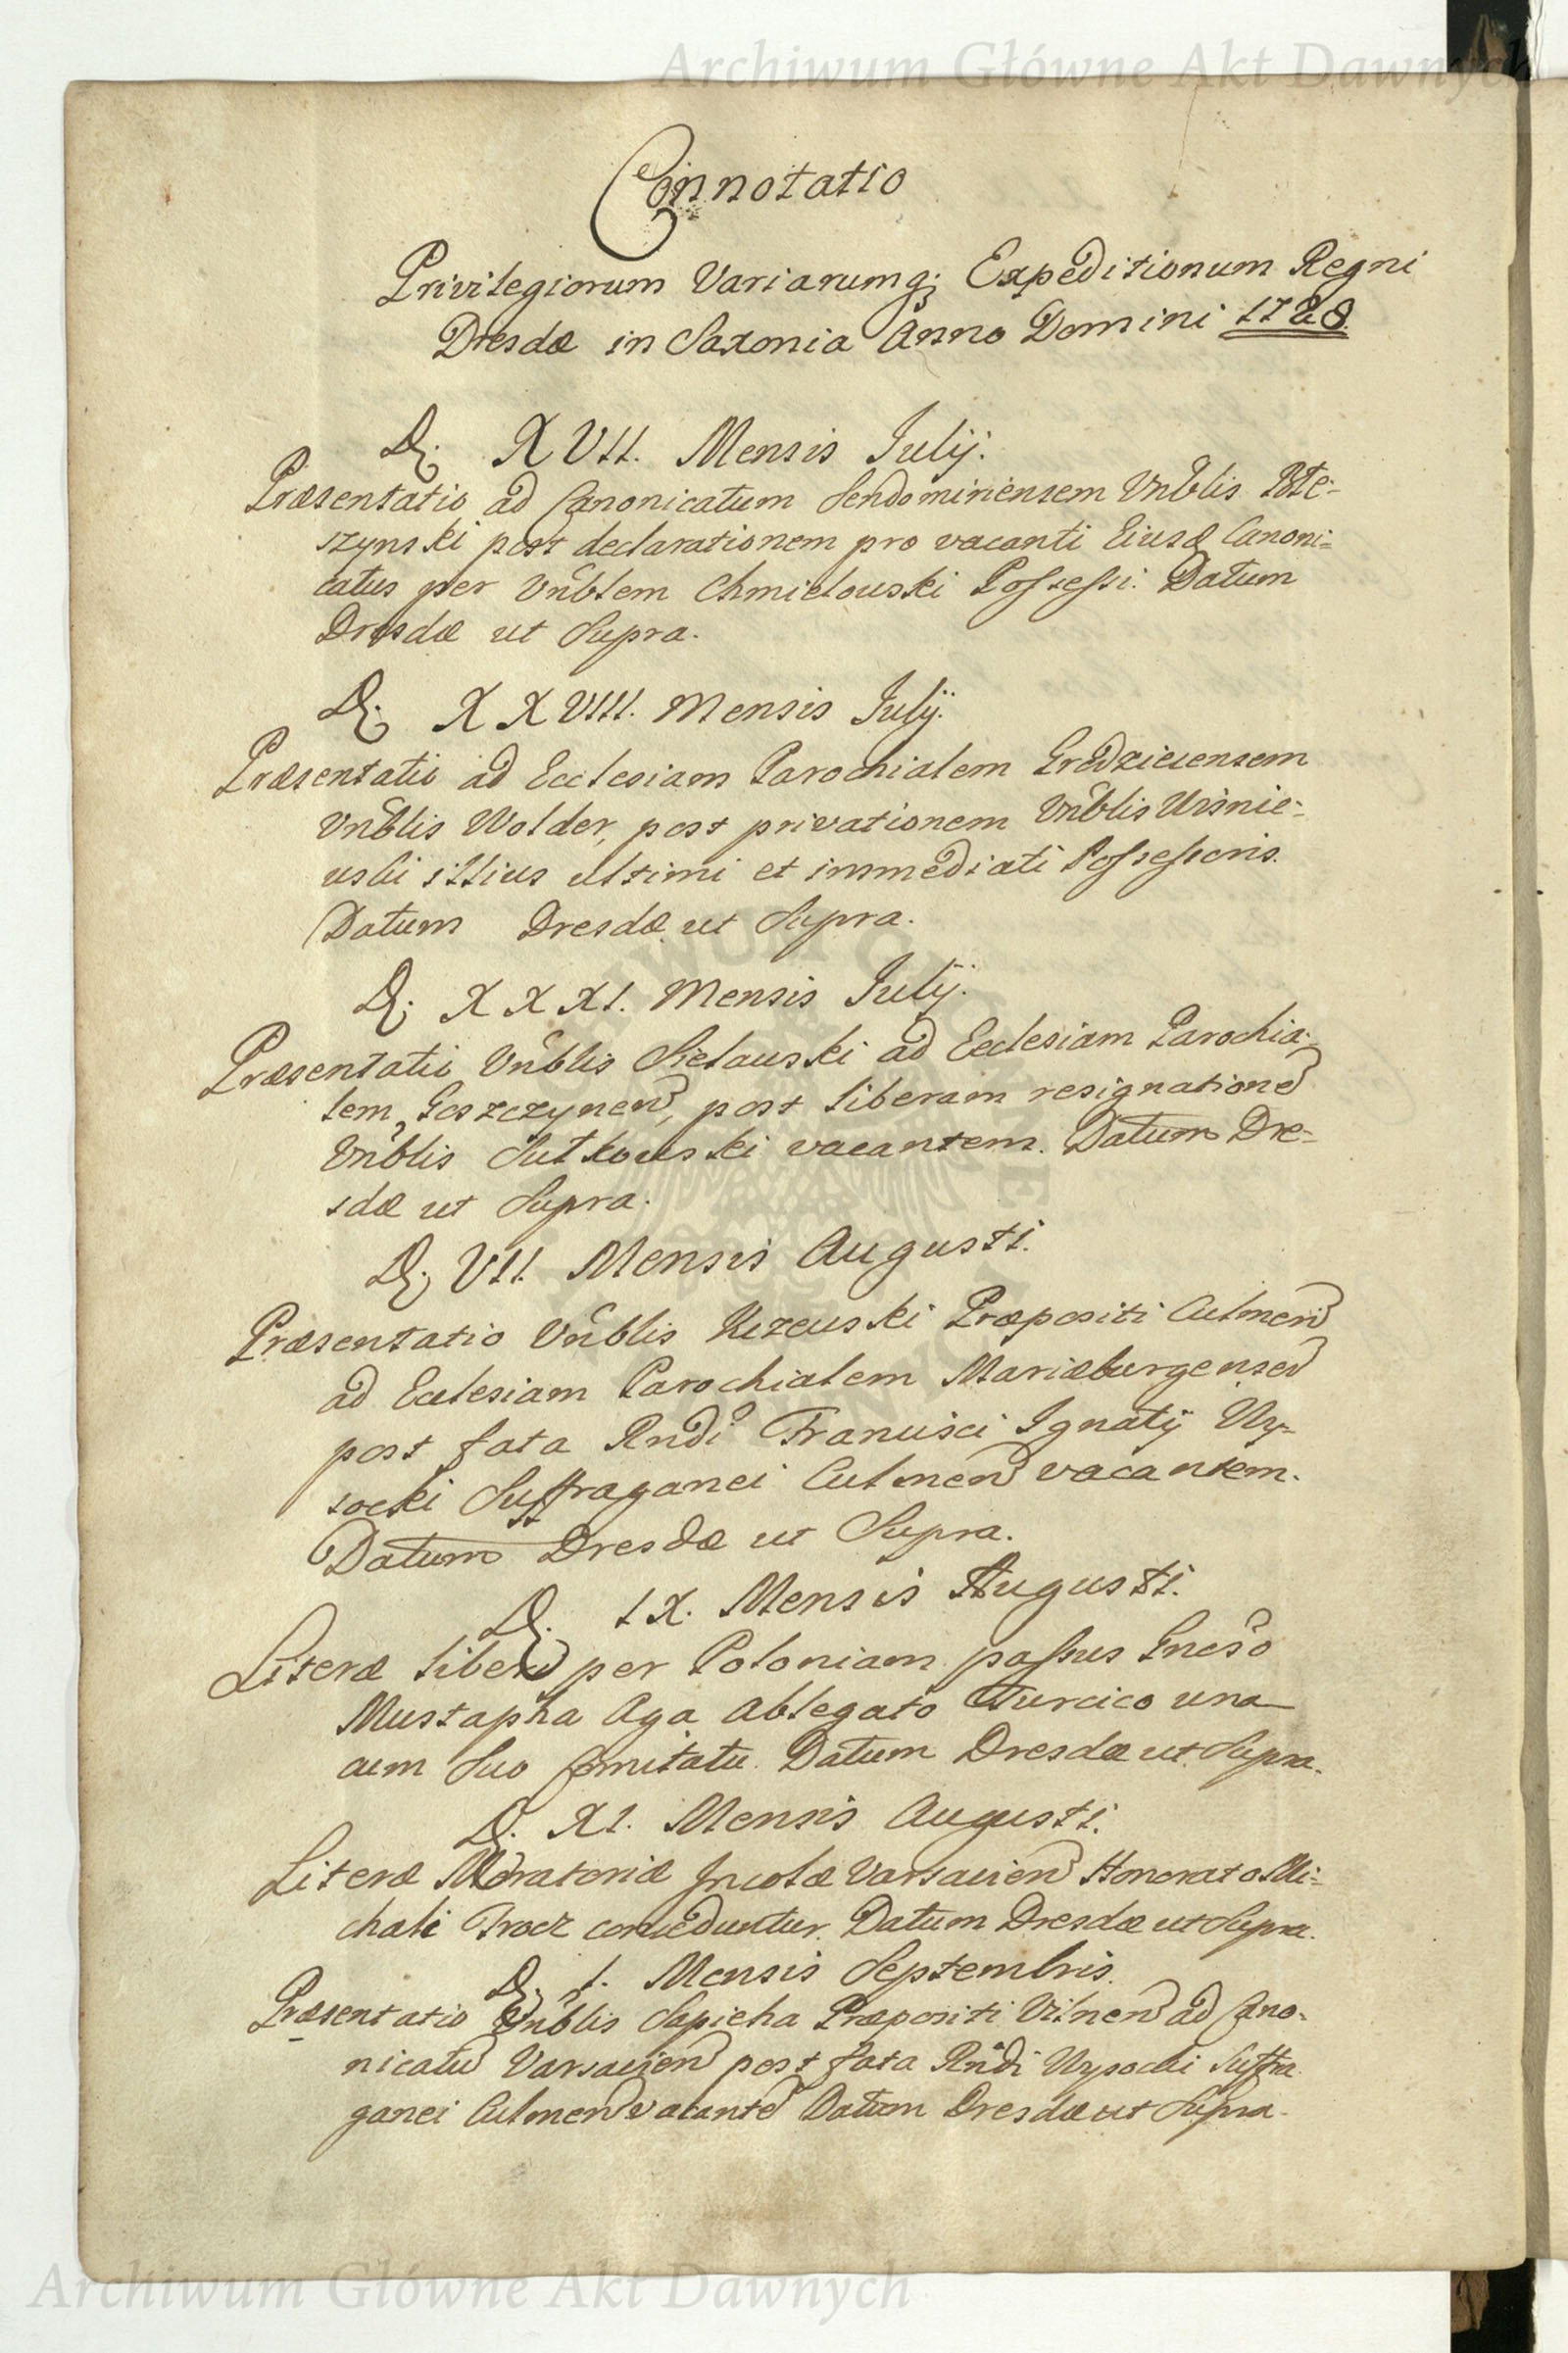 Archiwum Główne Akt Dawnych
Connotatio
Privilegiorum Variarumq; Expeditionum Regni
Dresdæ in Saxonia Anno Domini 1728.
D. XVII. Mensis Julij.
Præsentatio ad Canonicatum Sendomiriensem Vnblis
szynski post declarationem pro vacanti Eiusd Canoni=
catus per Vnblem Chmielouski Possessi. Datum
Dresdæ ut Supra.
D. XXVIII. Mensis Julij.
Præsentatio ad Ecclesiam Parochialem
Vnblis Wolder, post privationem Vnblis Wisnie=
uski illius ultimi et immediati Possessoris.
Datum Dresdæ ut Supra.
D. XXXI. Mensis Julij.
Præsentatio Vnblis Sielauski ad Ecclesiam Parochia=
lem Goszczynen, post liberam resignatione
Vnblis Sutkouski vacantem. Datum Dre=
sdæ ut Supra.
D. VII. Mensis Augusti.
Præsentatio Vnblis Rzeuski Præpositi Culmen
ad Ecclesiam Parochialem Mariæburgense
post fata Rndi Francisci Ignatij Wy=
socki Suffraganei Culmen vacantem.
Datum Dresdæ ut Supra.
D. IX. Mensis Augusti.
Literæ liberi per Poloniam passus Gneso
Mustapha Aga Ablegato Turcico una
cum Suo Comitatu. Datum Dresdæ ut Supra.
D. XI. Mensis Augusti.
Literæ Moratoriæ Incolæ Varsavien Honorato Mi=
chali conceduntur. Datum Dresdæ ut Supra.
D. 1. Mensis Septembris.
Præsentatio Vnblis Sapieha Præpositi Vilnen ad Cano=
nicatu Varsavien post fata Rndi Wysocki Suffra
ganei Culmen vacante Datum Dresdæ ut Supra.
Archiwum Główne Akt Dawnych